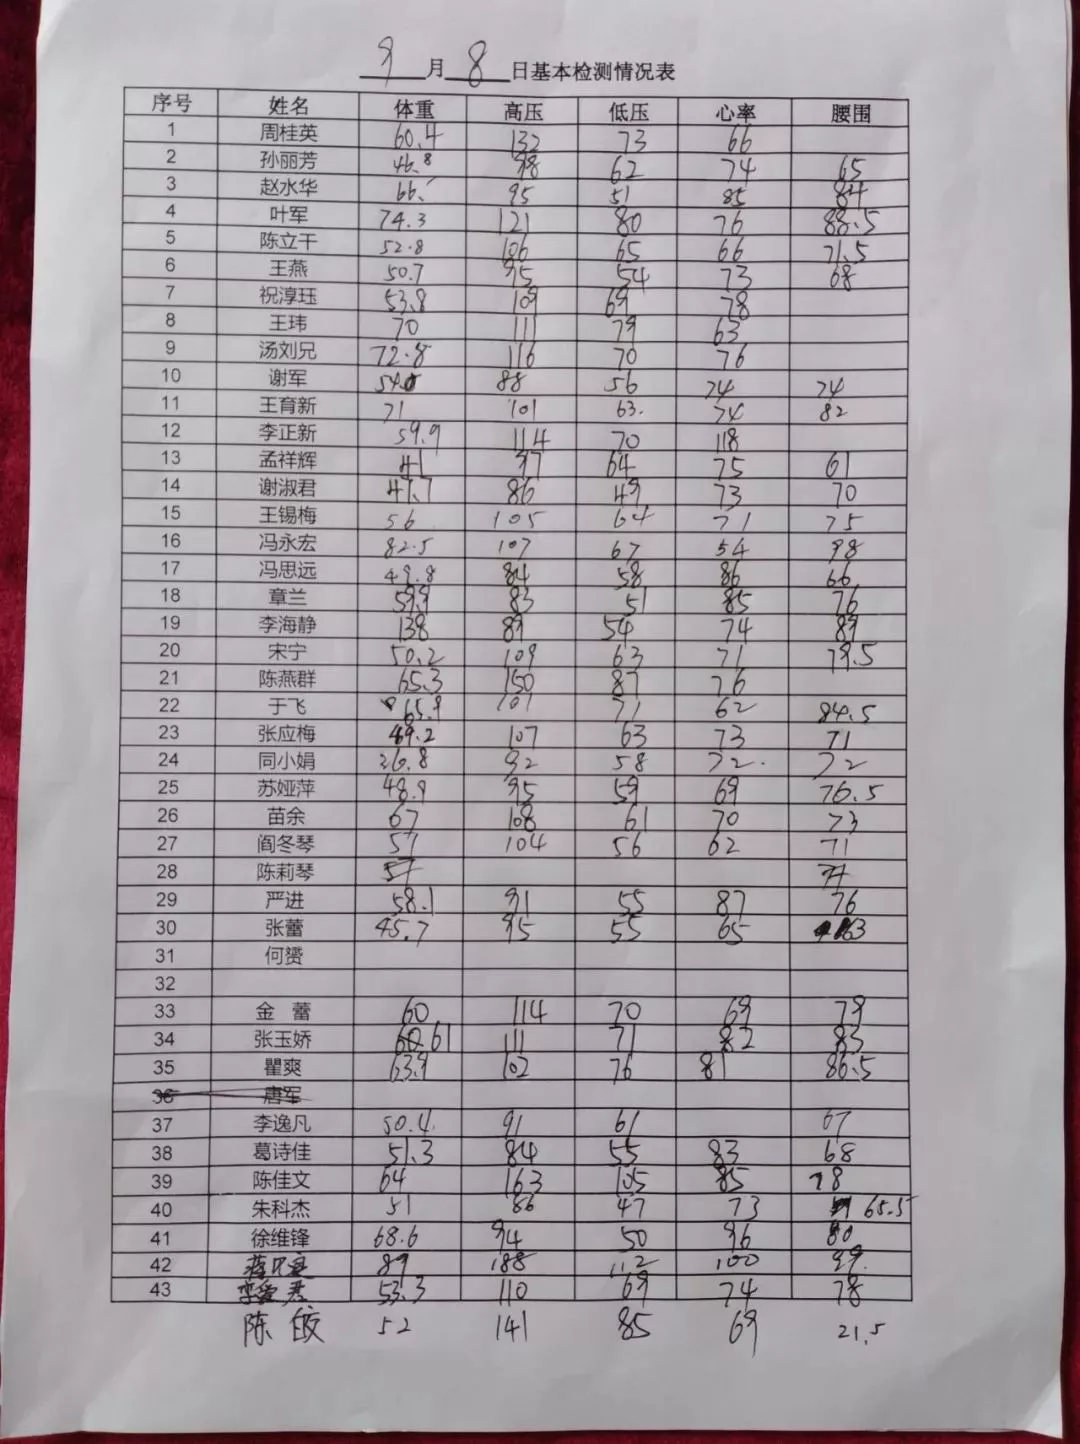 9月8日基本检测情况表
序号 姓名 体重 高压 低压 心率 腰围
1 周桂英 60.4 132 73 66
2 孙丽芳 46.8 98 62 74 65
3 赵水华 66. 95 51 85 84
4 叶军 74.3 121 80 76 88.5
5 陈立干 52.8 106 65 66 71.5
6 王燕 50.7 95 54 73 68
7 祝淳珏 53.8 109 69 78
8 王玮 70 111 79 63
9 汤刘兄 72.8 116 70 76
10 谢军 88 56 74 74
11 王育新 71 101 63. 74 82
12 李正新 59.9 114 70 118
13 孟祥辉 41 97 64 75 61
14 谢淑君 47.7 86 49 73 70
15 王锡梅 56 105 64 71 75
16 冯永宏 82.5 107 67 54 98
17 冯思远 49.8 84 58 86 66
18 章兰 59.9 83 51 85 76
19 李海静 138 89 54 74 89
20 宋宁 50.2 109 63 71 79.5
21 陈燕群 65.3 150 87 76
22 于飞 65.9 101 71 62 84.5
23 张应梅 49.2 107 63 73 71
24 同小娟 92 58 72. 72
25 苏娅萍 48.9 95 59 69 76.5
26 苗余 67 108 61 70 73
27 阎冬琴 57 104 56 62 71
28 陈莉琴 57
29 严进 58.1 91 55 87 76
30 张蕾 45.7 95 55 65 63
31 何赟
32
33 金 蕾 60 114 70 69 79
34 张玉娇 61 111 71 82 83
35 瞿爽 63.9 102 76 81 86.5
36 唐军
37 李逸凡 50.4 91 61 67
38 葛诗佳 51.3 84 55 83 68
39 陈佳文 64 163 105 85 78
40 朱科杰 51 86 47 73 65.5
41 徐维锋 68.6 94 50 96 80
42 89 188 112 100 99.
43 53.3 110 69 74 78
陈 皎 52 141 85 69 21.5